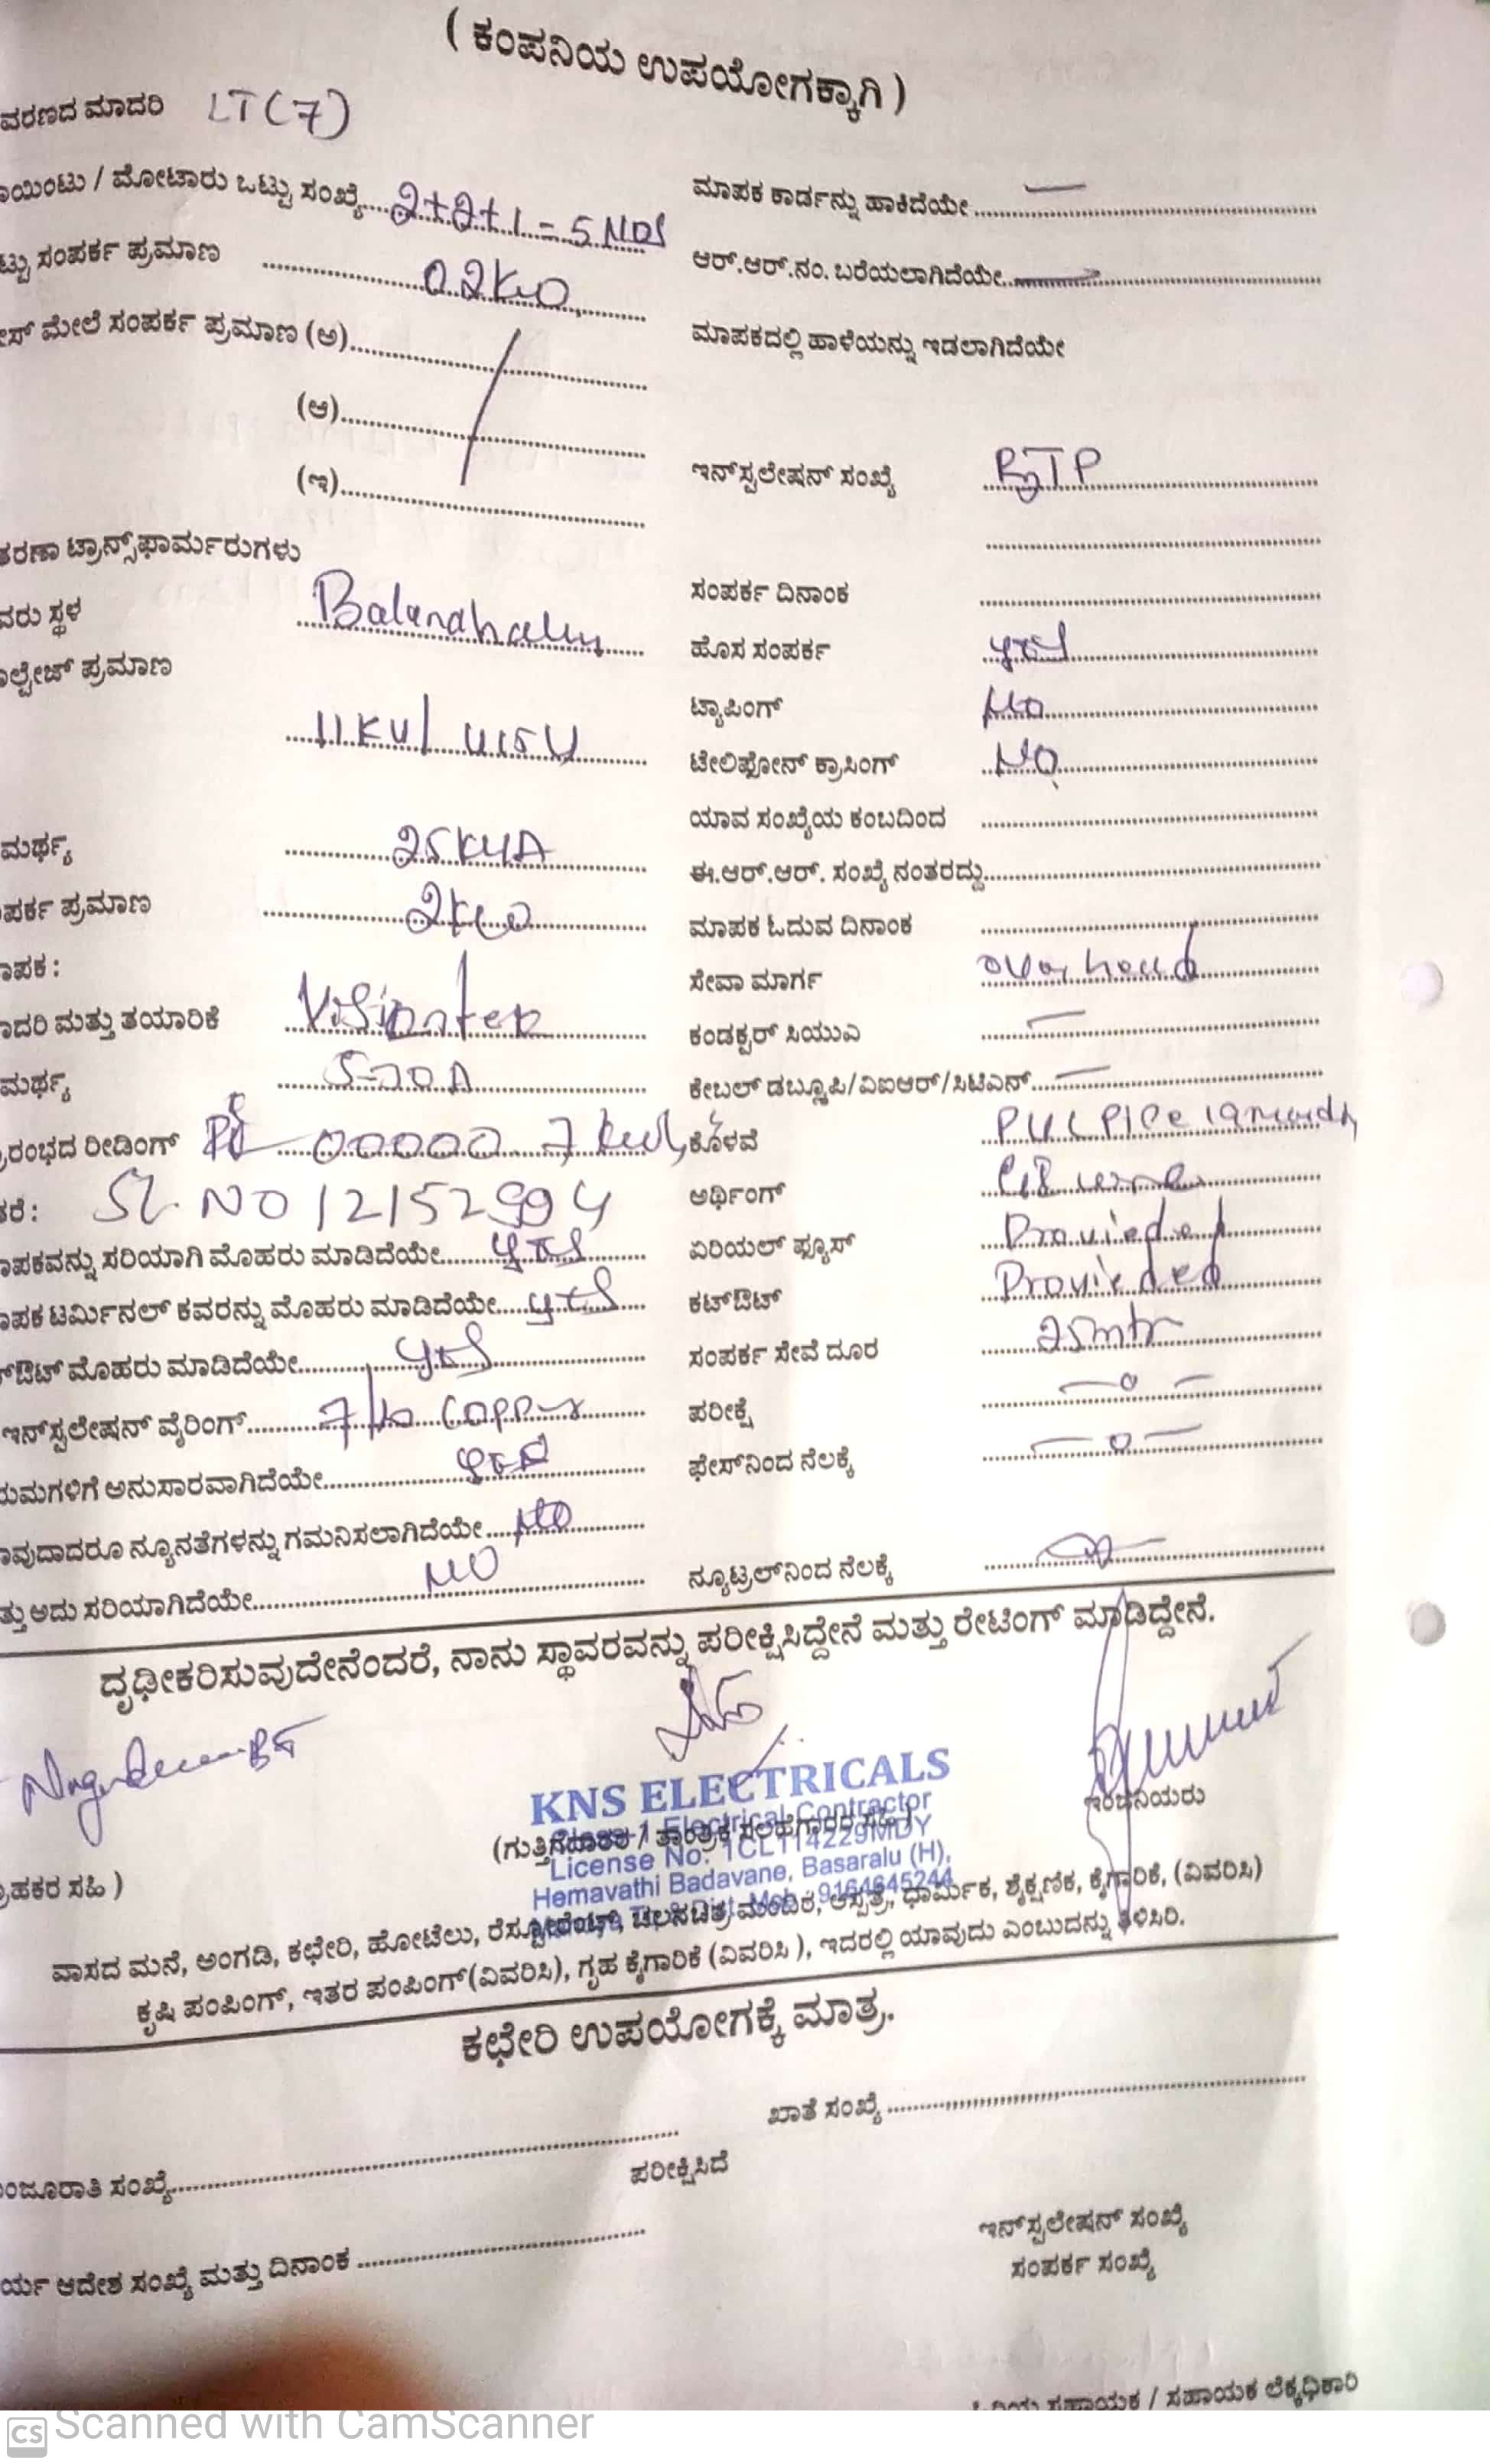 ( ಕಂಪನಿಯ ಉಪಯೋಗಕ್ಕಾಗಿ )
ವರಣದ ಮಾದರಿ LT(7)
ಯಿಂಟು / ಮೋಟಾರು ಒಟ್ಟು ಸಂಖ್ಯೆ.... 2+2+1=5 NOS
ಮಾಪಕ ಕಾರ್ಡನ್ನು ಹಾಕಿದೆಯೇ.......... —
ಟ್ಟು ಸಂಪರ್ಕ ಪ್ರಮಾಣ
ಆರ್.ಆರ್.ನಂ. ಬರೆಯಲಾಗಿದೆಯೇ..........
ಸ್ ಮೇಲೆ ಸಂಪರ್ಕ ಪ್ರಮಾಣ (ಅ)..........
ಮಾಪಕದಲ್ಲಿ ಹಾಳೆಯನ್ನು ಇಡಲಾಗಿದೆಯೇ
(ಆ)..........
(ಇ)..........
ಇನ್‌ಸ್ಟಲೇಷನ್ ಸಂಖ್ಯೆ
ತರಣಾ ಟ್ರಾನ್ಸ್‌ಫಾರ್ಮರುಗಳು
ಸಂಪರ್ಕ ದಿನಾಂಕ ..........
ವರು ಸ್ಥಳ
ಹೊಸ ಸಂಪರ್ಕ yes
ಲ್ಟೇಜ್ ಪ್ರಮಾಣ
ಟ್ಯಾಪಿಂಗ್ NO
11KV/
ಟೇಲಿಫೋನ್ ಕ್ರಾಸಿಂಗ್ NO
ಯಾವ ಸಂಖ್ಯೆಯ ಕಂಬದಿಂದ ..........
ಮರ್ಥ್ಯ 25KVA
ಈ.ಆರ್.ಆರ್. ಸಂಖ್ಯೆ ನಂತರದ್ದು..........
ಪರ್ಕ ಪ್ರಮಾಣ 2KW
ಮಾಪಕ ಓದುವ ದಿನಾಂಕ ..........
ಪಕ :
ಸೇವಾ ಮಾರ್ಗ over head
ದರಿ ಮತ್ತು ತಯಾರಿಕೆ
ಕಂಡಕ್ಟರ್ ಸಿಯುಎ —
ಮರ್ಥ್ಯ
ಕೇಬಲ್ ಡಬ್ಲ್ಯೂಪಿ/ವಿಐಆರ್/ಸಿಟಿಎನ್..... —
ರಂಭದ ರೀಡಿಂಗ್
ಕೊಳವೆ
ತರೆ : SL. NO
ಅರ್ಥಿಂಗ್
ಪಕವನ್ನು ಸರಿಯಾಗಿ ಮೊಹರು ಮಾಡಿದೆಯೇ..... yes
ಏರಿಯಲ್ ಫ್ಯೂಸ್ Provieded
ಪಕ ಟರ್ಮಿನಲ್ ಕವರನ್ನು ಮೊಹರು ಮಾಡಿದೆಯೇ..... yes
ಕಟ್‌ಔಟ್ Provieded
ಔಟ್ ಮೊಹರು ಮಾಡಿದೆಯೇ..... yes
ಸಂಪರ್ಕ ಸೇವೆ ದೂರ 25mtr
ಇನ್‌ಸ್ಟಲೇಷನ್ ವೈರಿಂಗ್.....
ಪರೀಕ್ಷೆ —o—
ಯಮಗಳಿಗೆ ಅನುಸಾರವಾಗಿದೆಯೇ..... yes
ಫೇಸ್‌ನಿಂದ ನೆಲಕ್ಕೆ —o—
ವುದಾದರೂ ನ್ಯೂನತೆಗಳನ್ನು ಗಮನಿಸಲಾಗಿದೆಯೇ..... NO
ತ್ತು ಅದು ಸರಿಯಾಗಿದೆಯೇ..... NO
ನ್ಯೂಟ್ರಲ್‌ನಿಂದ ನೆಲಕ್ಕೆ
ದೃಢೀಕರಿಸುವುದೇನೆಂದರೆ, ನಾನು ಸ್ಥಾವರವನ್ನು ಪರೀಕ್ಷಿಸಿದ್ದೇನೆ ಮತ್ತು ರೇಟಿಂಗ್ ಮಾಡಿದ್ದೇನೆ.
KNS ELECTRICALS
Class-1 Electrical Contractor
License No: 1CL114229MDY
Hemavathi Badavane, Basaralu (H),
9164645244
(ಗುತ್ತಿಗೆದಾರರ / ತಾಂತ್ರಿಕ ಸಲಹೆಗಾರರ ಸಹಿ )
ಇಂಜಿನಿಯರು
ರಾಹಕರ ಸಹಿ )
ವಾಸದ ಮನೆ, ಅಂಗಡಿ, ಕಛೇರಿ, ಹೋಟೆಲು, ರೆಸ್ಟೋರೆಂಟ್, ಚಲನಚಿತ್ರ ಮಂದಿರ, ಆಸ್ಪತ್ರೆ, ಧಾರ್ಮಿಕ, ಶೈಕ್ಷಣಿಕ, ಕೈಗಾರಿಕೆ, (ವಿವರಿಸಿ)
ಕೃಷಿ ಪಂಪಿಂಗ್, ಇತರ ಪಂಪಿಂಗ್(ವಿವರಿಸಿ), ಗೃಹ ಕೈಗಾರಿಕೆ (ವಿವರಿಸಿ ), ಇದರಲ್ಲಿ ಯಾವುದು ಎಂಬುದನ್ನು ತಿಳಿಸಿರಿ.
ಕಛೇರಿ ಉಪಯೋಗಕ್ಕೆ ಮಾತ್ರ.
ಖಾತೆ ಸಂಖ್ಯೆ ..........
ಂಜೂರಾತಿ ಸಂಖ್ಯೆ..........
ಪರೀಕ್ಷಿಸಿದೆ
ಇನ್‌ಸ್ಟಲೇಷನ್ ಸಂಖ್ಯೆ
ರ್ಯ ಆದೇಶ ಸಂಖ್ಯೆ ಮತ್ತು ದಿನಾಂಕ ..........
ಸಂಪರ್ಕ ಸಂಖ್ಯೆ
ಹಿರಿಯ ಸಹಾಯಕ / ಸಹಾಯಕ ಲೆಕ್ಕಧಿಕಾರಿ
CS Scanned with CamScanner